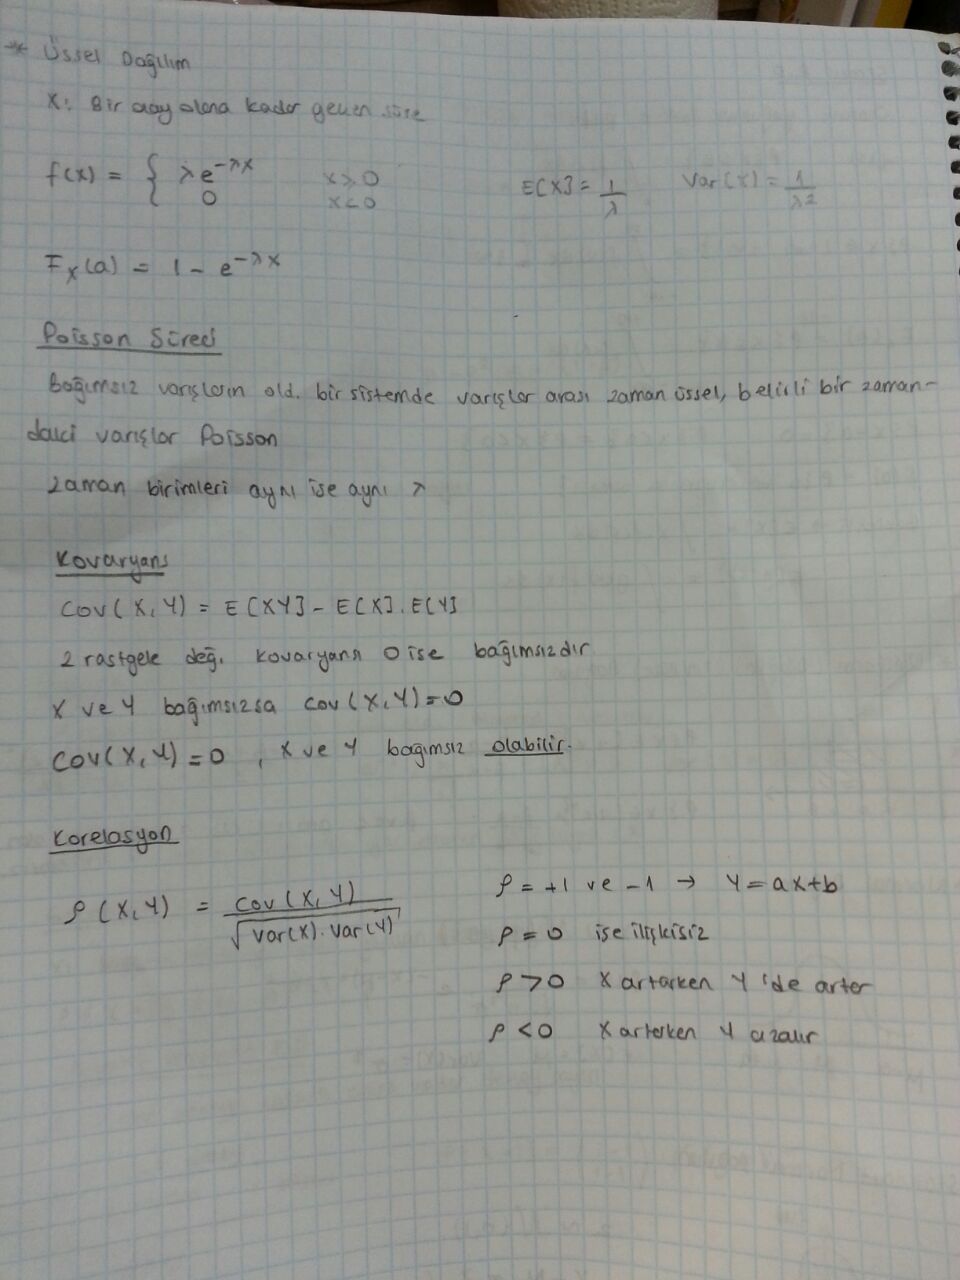 * Üssel Dağılım
X: Bir olay olana kadar geçen süre
f(x) = { λe^-λx x≥0
0 x<0
E[X] = 1/λ Var(X) = 1/λ²
F_X(a) = 1 - e^-λx
Poisson Süreci
Bağımsız varışların old. bir sistemde varışlar arası zaman üssel, belirli bir zaman-
daki varışlar Poisson
zaman birimleri aynı ise aynı λ
Kovaryans
Cov(X,Y) = E[XY] - E[X].E[Y]
2 rastgele değ. kovaryansı 0 ise bağımsızdır
X ve Y bağımsızsa cov(X,Y)=0
Cov(X,Y)=0, X ve Y bağımsız olabilir.
Korelasyon
ρ(X,Y) = cov(X,Y) / √var(x).var(Y)
ρ = +1 ve -1 → Y = ax+b
ρ = 0 ise ilişkisiz
ρ > 0 X artarken Y'de artar
ρ < 0 X artarken Y azalır